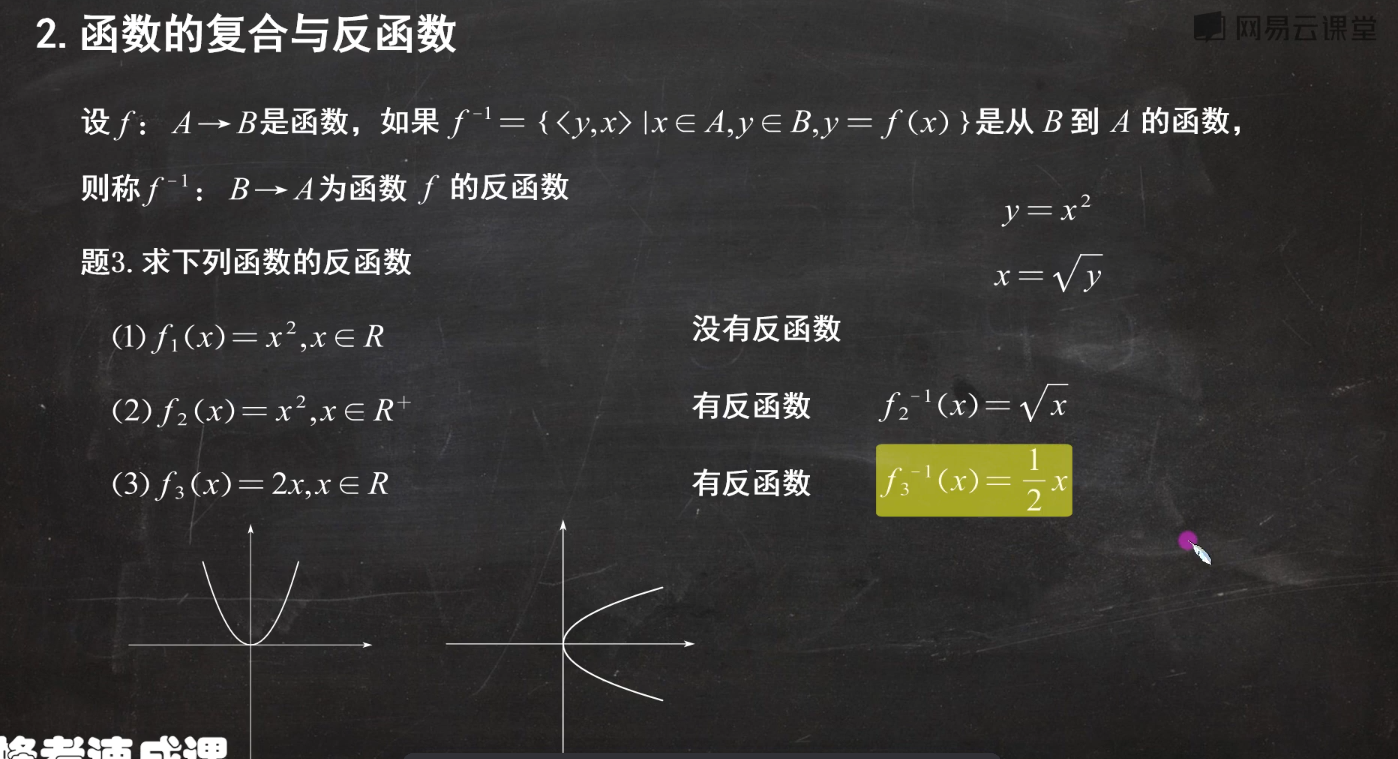 2. 函数的复合与反函数
网易云课堂
设 f： A→B是函数，如果 f⁻¹= {<y,x> |x∈A,y∈B,y= f(x)}是从 B 到 A 的函数，
则称 f⁻¹： B→A为函数 f 的反函数
y=x²
题3. 求下列函数的反函数
x=√y
(1) f₁(x)=x²,x∈R 没有反函数
(2) f₂(x)=x²,x∈R⁺ 有反函数 f₂⁻¹(x)=√x
(3) f₃(x)=2x,x∈R 有反函数 f₃⁻¹(x)=1/2 x
考速成课